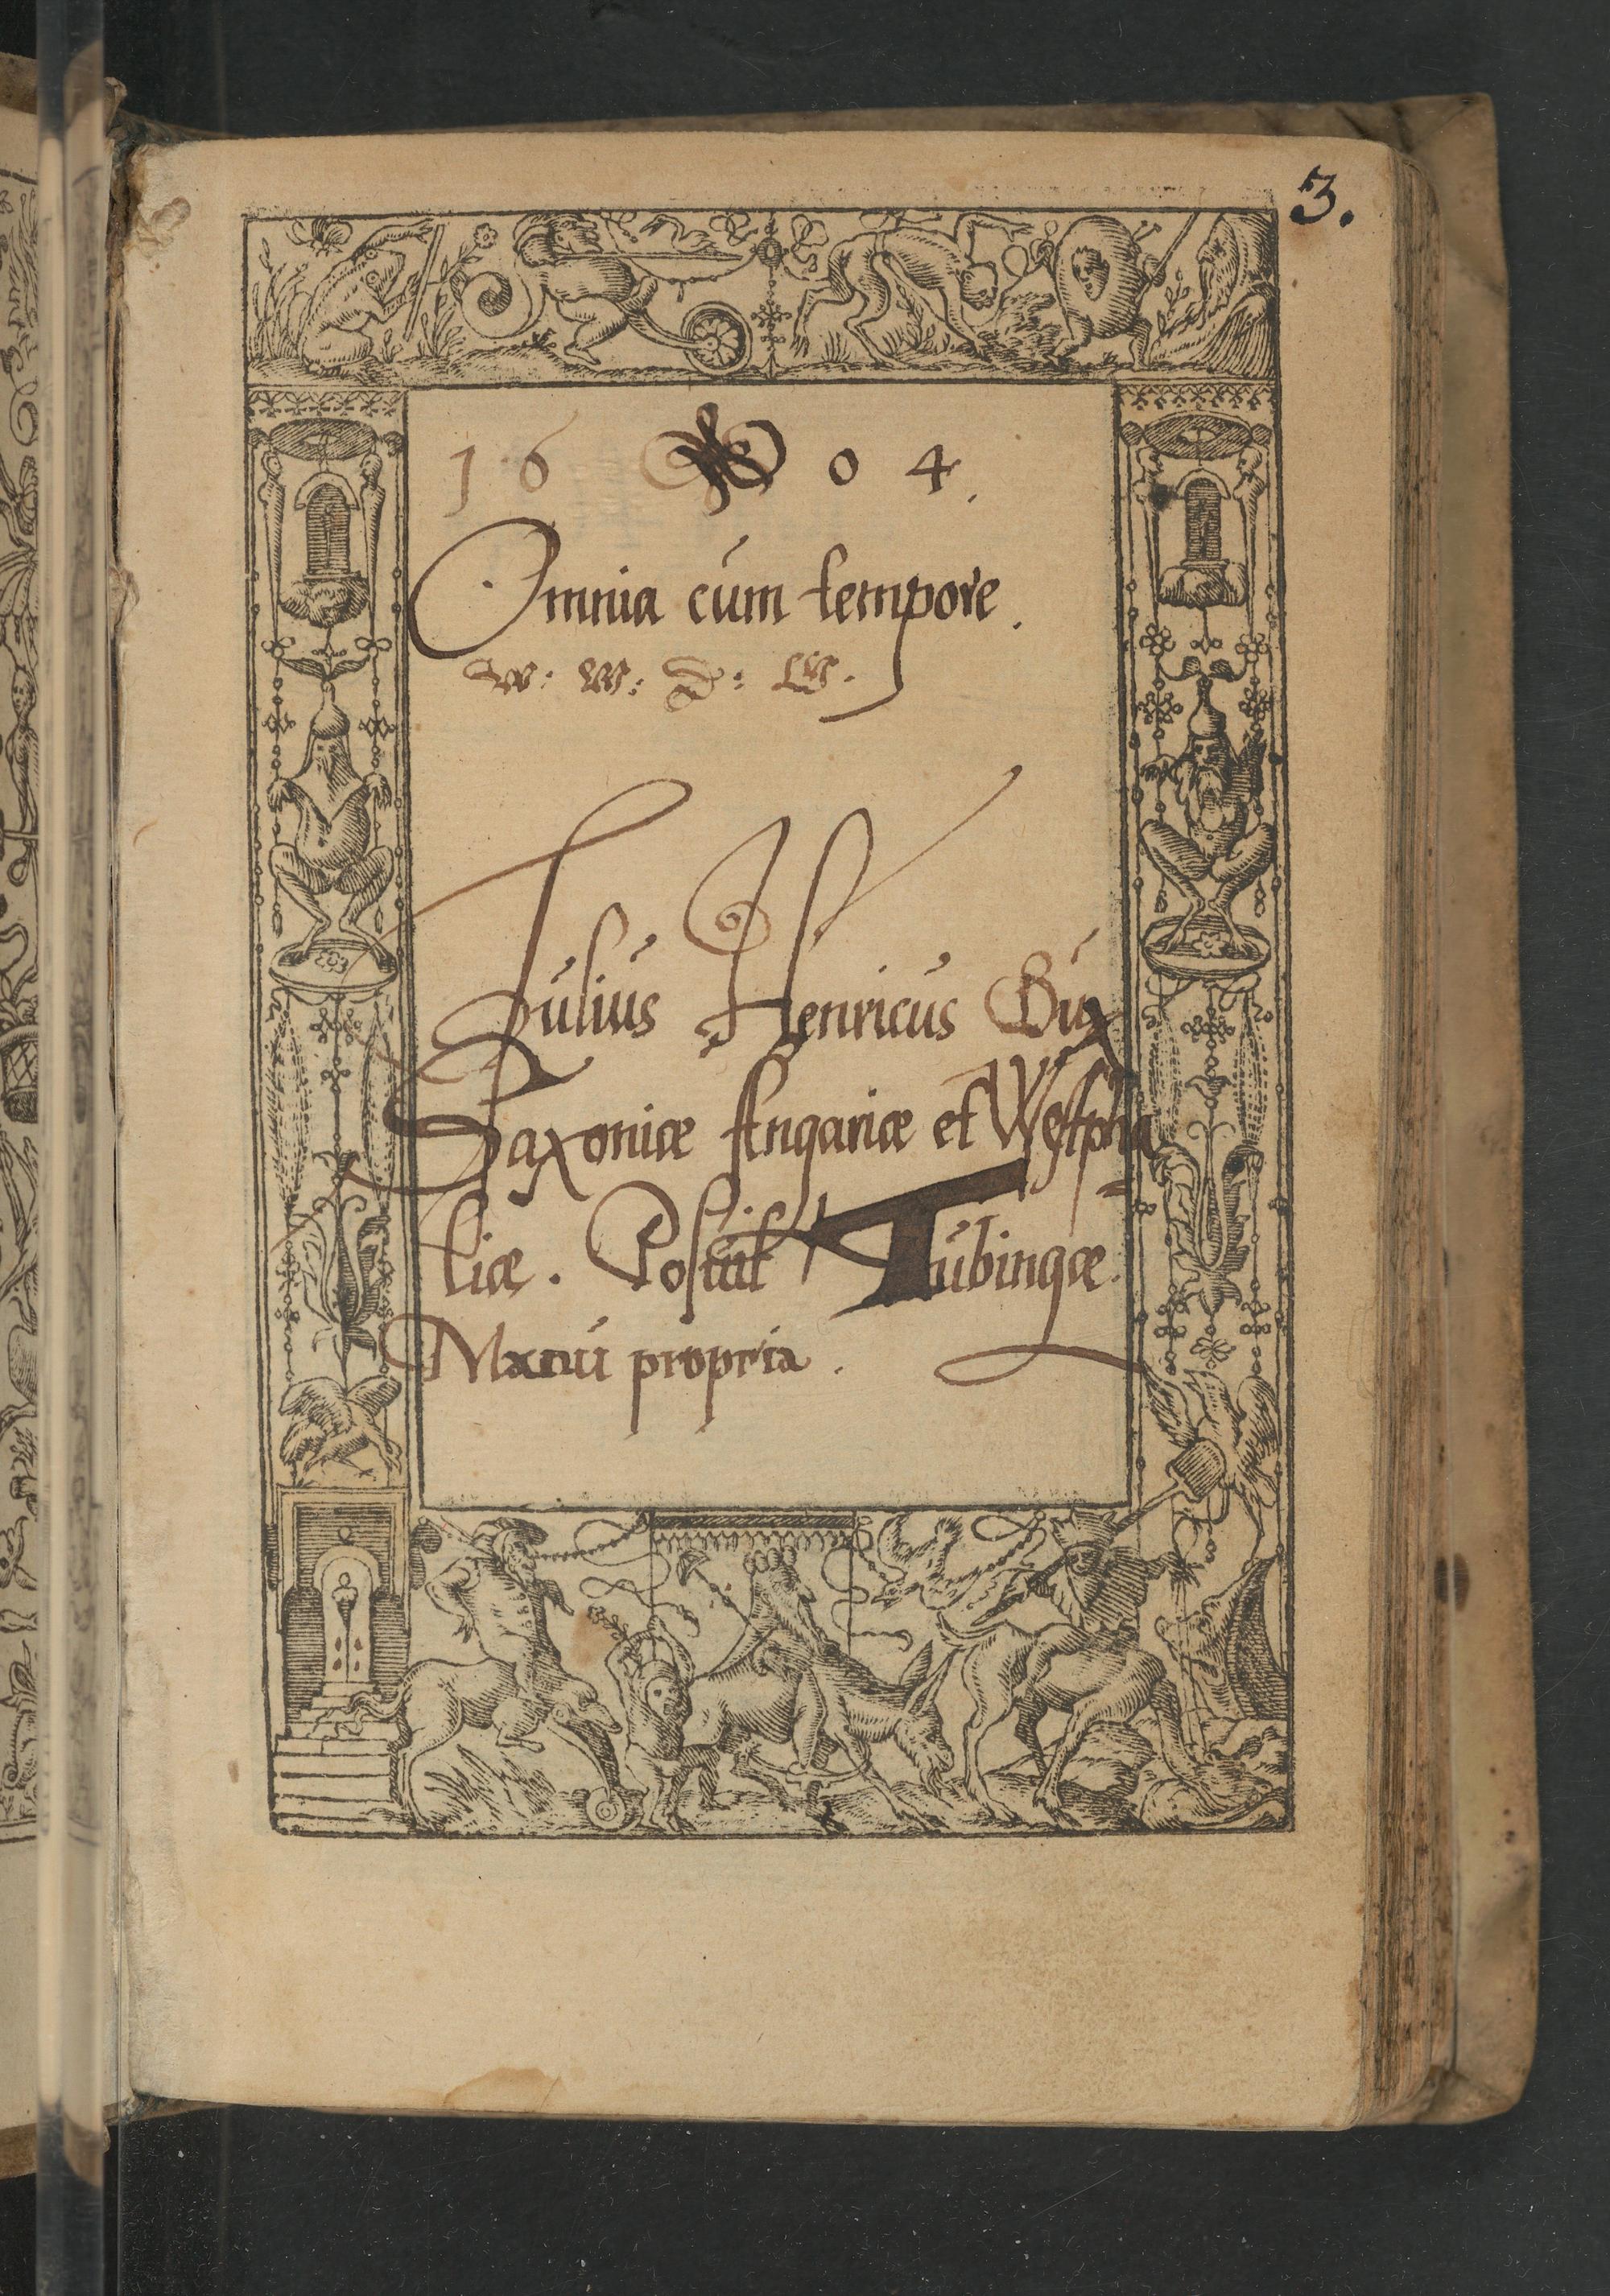 3.
16 04.
Omnia cum tempore.
W: W: D: W.
Julius Henricus Dux
Saxoniæ Angariæ et Westpha=
liæ. Posuit Tubingæ.
Manu propria.